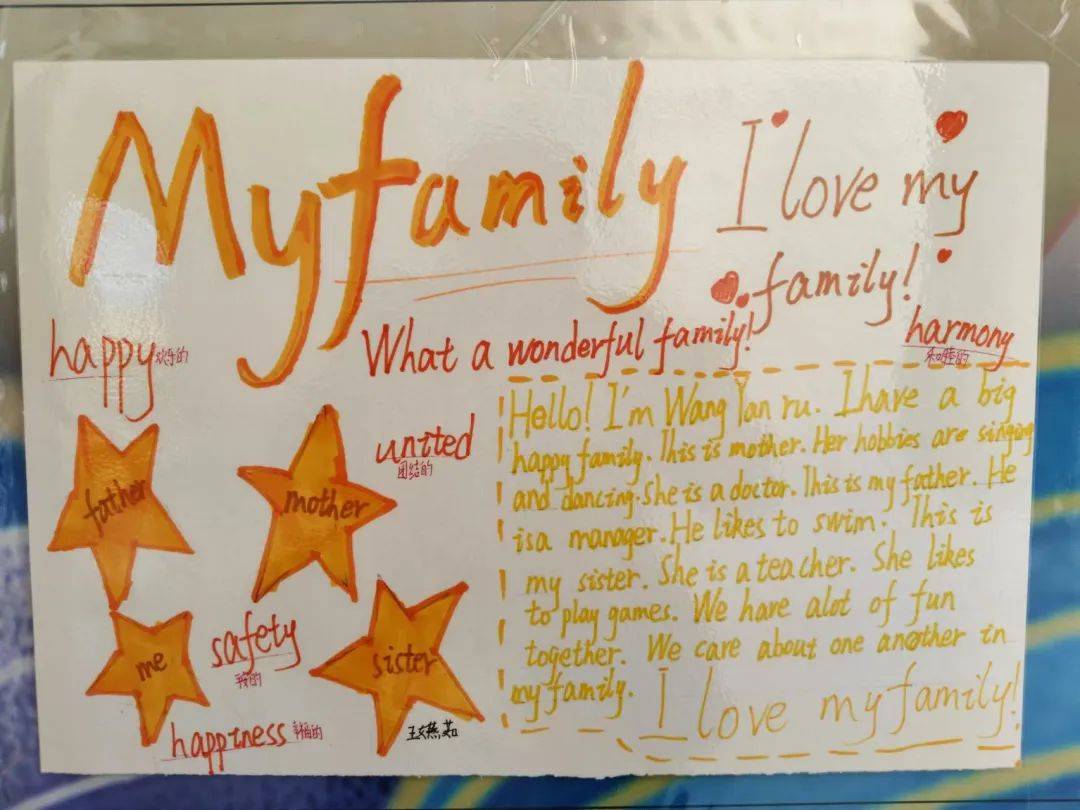 My family
I love my
family!
What a wonderful family!
happy 欢乐的
harmony
和谐的
united
团结的
father
mother
me
sister
safety
happiness 幸福的
王燕茹
Hello! I'm Wang Yan ru. I have a big
happy family. This is mother. Her hobbies are singing
and dancing. She is a doctor. This is my father. He
is a manager. He likes to swim. This is
my sister. She is a teacher. She likes
to play games. We have alot of fun
together. We care about one another in
my family.
I love my family!